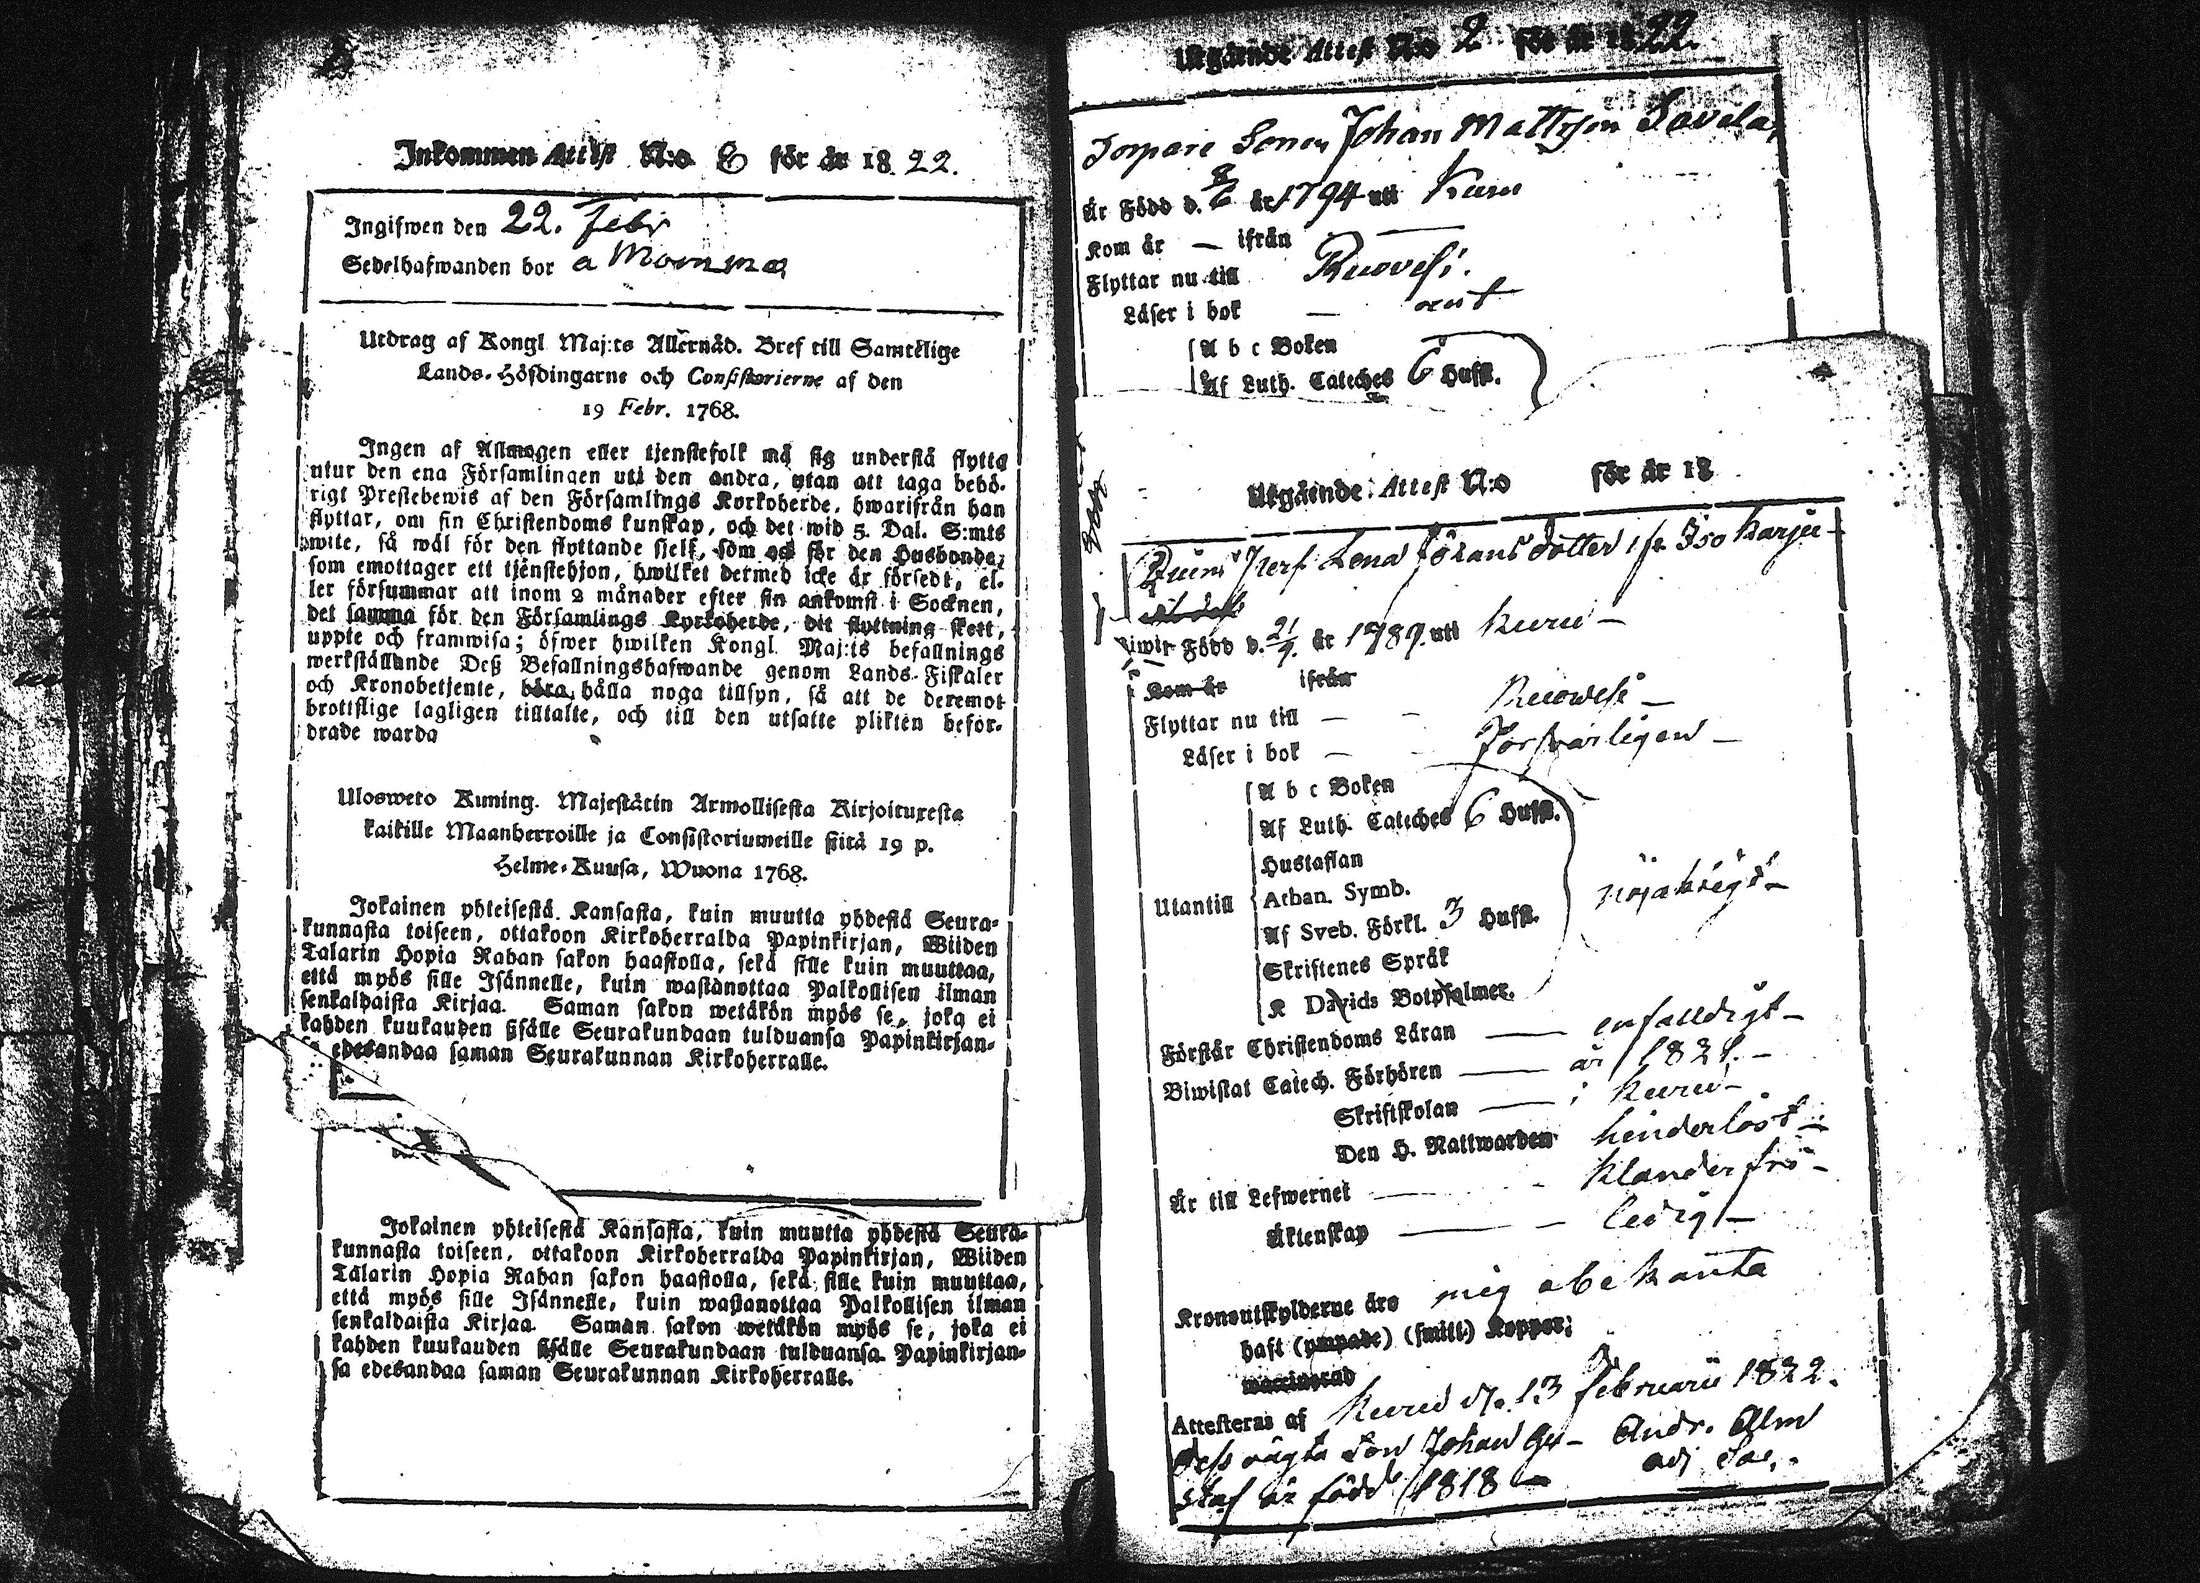 Inkommen Attest N:o 8 för år 1822.
Ingifwen den 22. Febr
Sedelhafwanden bor a Mommo
Utdrag af Kongl Maj:ts Allernåd. Bref till Samtelige
Lands-Höfdingarne och Consistorierne af den
19 Febr. 1768.
Ingen af Allmogen eller tjenstefolk må sig understå flytta
utur den ena Församlingen uti den andra, utan att taga behö-
rigt Prestebewis af den Församlings Korkoherde, hwarifrån han
flyttar, om sin Christendoms kunskap, och det wid 5. Dal. S:mts
wite, så wäl för den flyttande sjelf, som ock för den Husbonde,
som emottager ett tjenstehjon, hwilket dermed icke är försedt, el-
ler försummar att inom 2 månader efter sin ankomst i Socknen,
det samma för den Församlings Kyrkoherde, dit flyttning skett,
uppte och framwisa; öfwer hwilken Kongl. Maj:ts befallnings
werkställande Deß Befallningshafwande genom Lands-Fiskaler
och Kronobetjente, böra hålla noga tillsyn, så att de deremot
brottslige lagligen tilltalte, och till den utsatte plikten beför-
drade warda
Ulosweto Kuning. Majestätin Armollisesta Kirjoituxesta
kaikille Maanherroille ja Consistoriumeille siitä 19 p.
Helme-Kuusa, Wuona 1768.
Jokainen yhteisestä Kansasta, kuin muutta yhdestä Seura-
kunnasta toiseen, ottakoon Kirkoherralda Papinkirjan, Wiiden
Talarin Hopia Rahan sakon haastolla, sekä sille kuin muuttaa,
että myös sille Isännelle, kuin wastanottaa Palkollisen ilman
senkaldaista Kirjaa. Saman sakon wetäkön myös se, joka ei
kahden kuukauden sisälle Seurakundaan tulduansa Papinkirjan-
sa edesandaa saman Seurakunnan Kirkoherralle.
Jokainen yhteisestä Kansasta, kuin muutta yhdestä Seura-
kunnasta toiseen, ottakoon Kirkoherralda Papinkirjan, Wiiden
Talarin Hopia Rahan sakon haastolla, sekä sille kuin muuttaa,
että myös sille Isännelle, kuin wastanottaa Palkollisen ilman
senkaldaista Kirjaa. Saman sakon wetäkön myös se, joka ei
kahden kuukauden sisälle Seurakundaan tulduansa Papinkirjan-
sa edesandaa saman Seurakunnan Kirkoherralle.
Utgående Attest N:o 2 för år 1822.
Torpare Sonen Johan Mattsson Savela,
Är Född d. 8/6 år 1794 uti Kuru
Kom år — ifrån —
Flyttar nu till Ruovesi.
Läser i bok —
A b c Boken
Af Luth. Cateches 6 Hufst.
Utgående Attest N:o för år 18
Lena Johans dotter ifr. Iso Karju-
Född d. 21/9. år 1789. uti Kuru —
Kom år ifrån
Flyttar nu till — — Ruowesi —
Läser i bok — — Försvarligen —
A b c Boken
Af Luth. Cateches 6 Hufst.
Hustaflan
Athan. Symb.
Utantill
Af Sveb. Förkl. 3 Hufst.
nöjaktigt —
Skriftenes Språk
K Davids Botpsalmer.
Förstår Christendoms Läran — enfalldigt —
Biwistat Catech. Förhören — år 1821. —
Skriftskolan — i Kuru —
Den H. Nattwarden hinderlöst —
Är till Lefwernet — klanderfri —
Äktenskap — ledig —
Kronoutskylderne äro mig obekanta
haft (ympade) (smitt.) Koppor;
waccinerad
Attesteras af Kuru d. 13 Februarii 1822.
Dess oägta Son Johan Gu- Andr. Alm
staf är född 1818 — adj. Sac.